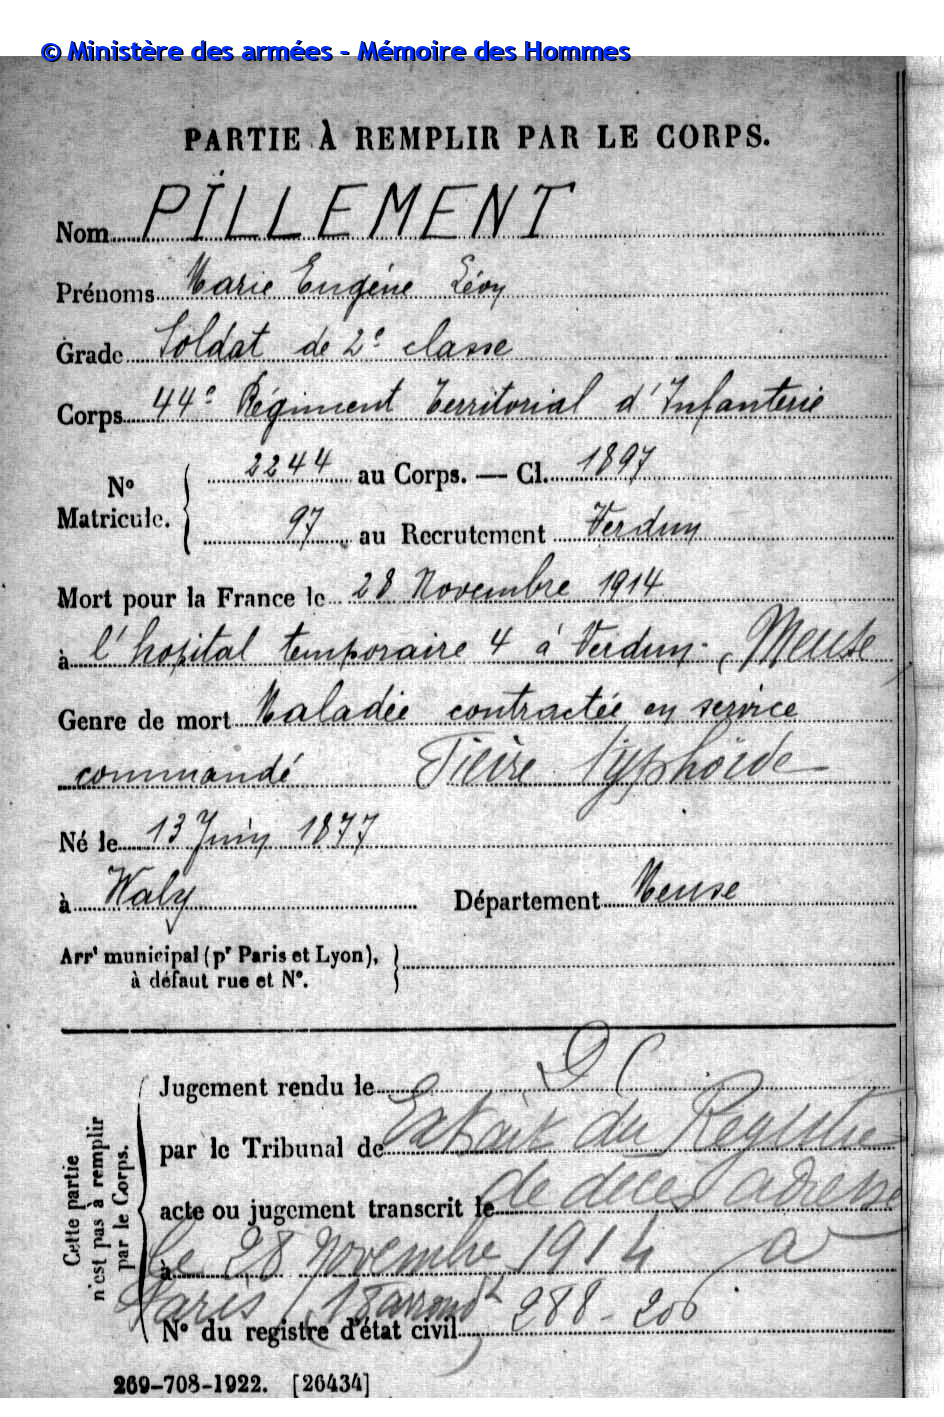 © Ministère des armées - Mémoire des Hommes
PARTIE À REMPLIR PAR LE CORPS.
Nom PILLEMENT
Prénoms Marie Eugène Léon
Grade Soldat de 2e classe
Corps 44e Régiment Territorial d'Infanterie
No Matricule. 2244 au Corps. — Cl. 1897
97 au Recrutement Verdun
Mort pour la France le 28 Novembre 1914
à l'hopital temporaire 4 à Verdun (Meuse)
Genre de mort Maladie contractée en service
commandé Fièvre typhoïde
Né le 13 Juin 1877
à Waly Département Meuse
Arrt municipal (pr Paris et Lyon),
à défaut rue et No.
Cette partie n'est pas à remplir par le Corps.
Jugement rendu le
par le Tribunal de Extrait du Registre
acte ou jugement transcrit le de décès adressé
à le 28 novembre 1914 a
Paris (18 arrondt
No du registre d'état civil 288-206
269-708-1922. [26434]